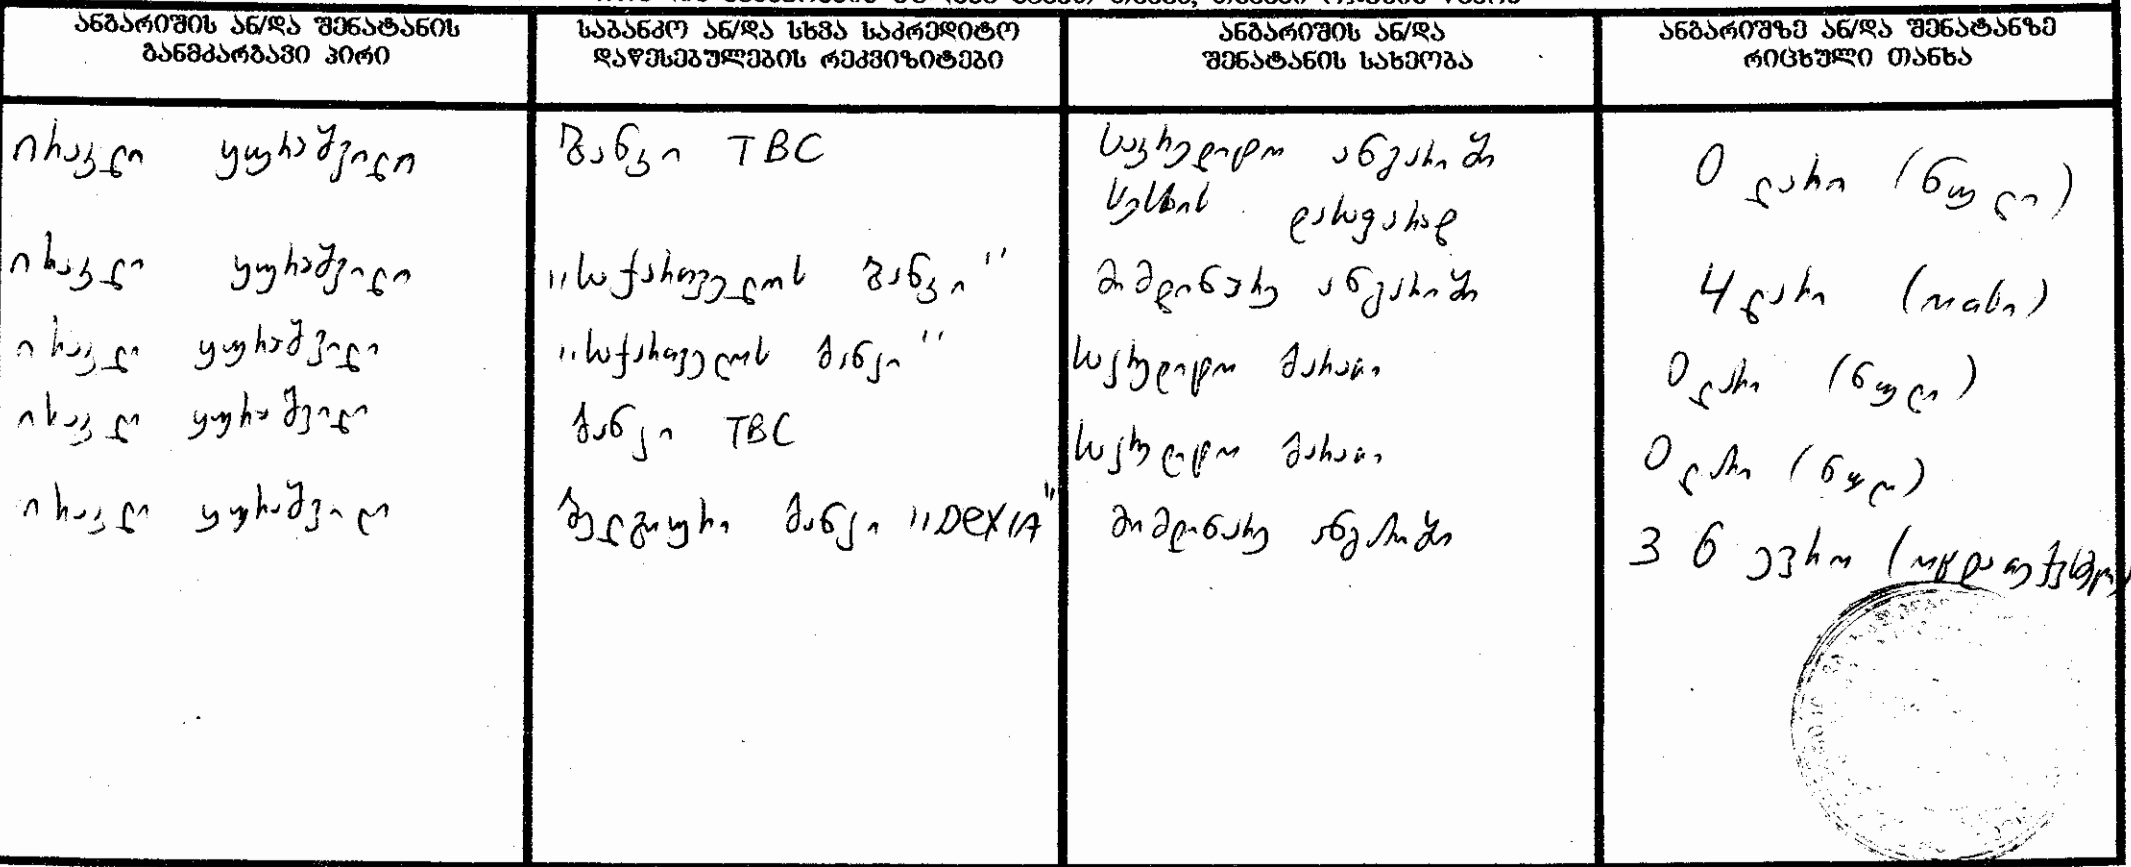 ანგარიშის ან/და შენატანის განმკარგავი პირი
საბანკო ან/და სხვა საკრედიტო დაწესებულების რეკვიზიტები
ანგარიშის ან/და შენატანის სახეობა
ანგარიშზე ან/და შენატანზე რიცხული თანხა
ირაკლი ყურაშვილი ბანკი TBC საკრედიტო ანგარიში 0 ლარი (ნული)
სესხის დასაფარად
ირაკლი ყურაშვილი ,,საქართველოს ბანკი" მიმდინარე ანგარიში 4 ლარი (ოთხი)
ირაკლი ყურაშვილი ,,საქართველოს ბანკი" საკრედიტო ბარათი 0 ლარი (ნული)
ირაკლი ყურაშვილი ბანკი TBC საკრედიტო ბარათი 0 ლარი (ნული)
ირაკლი ყურაშვილი ბელგიური ბანკი ,,DeXIA" მიმდინარე ანგარიში 36 ევრო (ოცდათექვსმეტი)